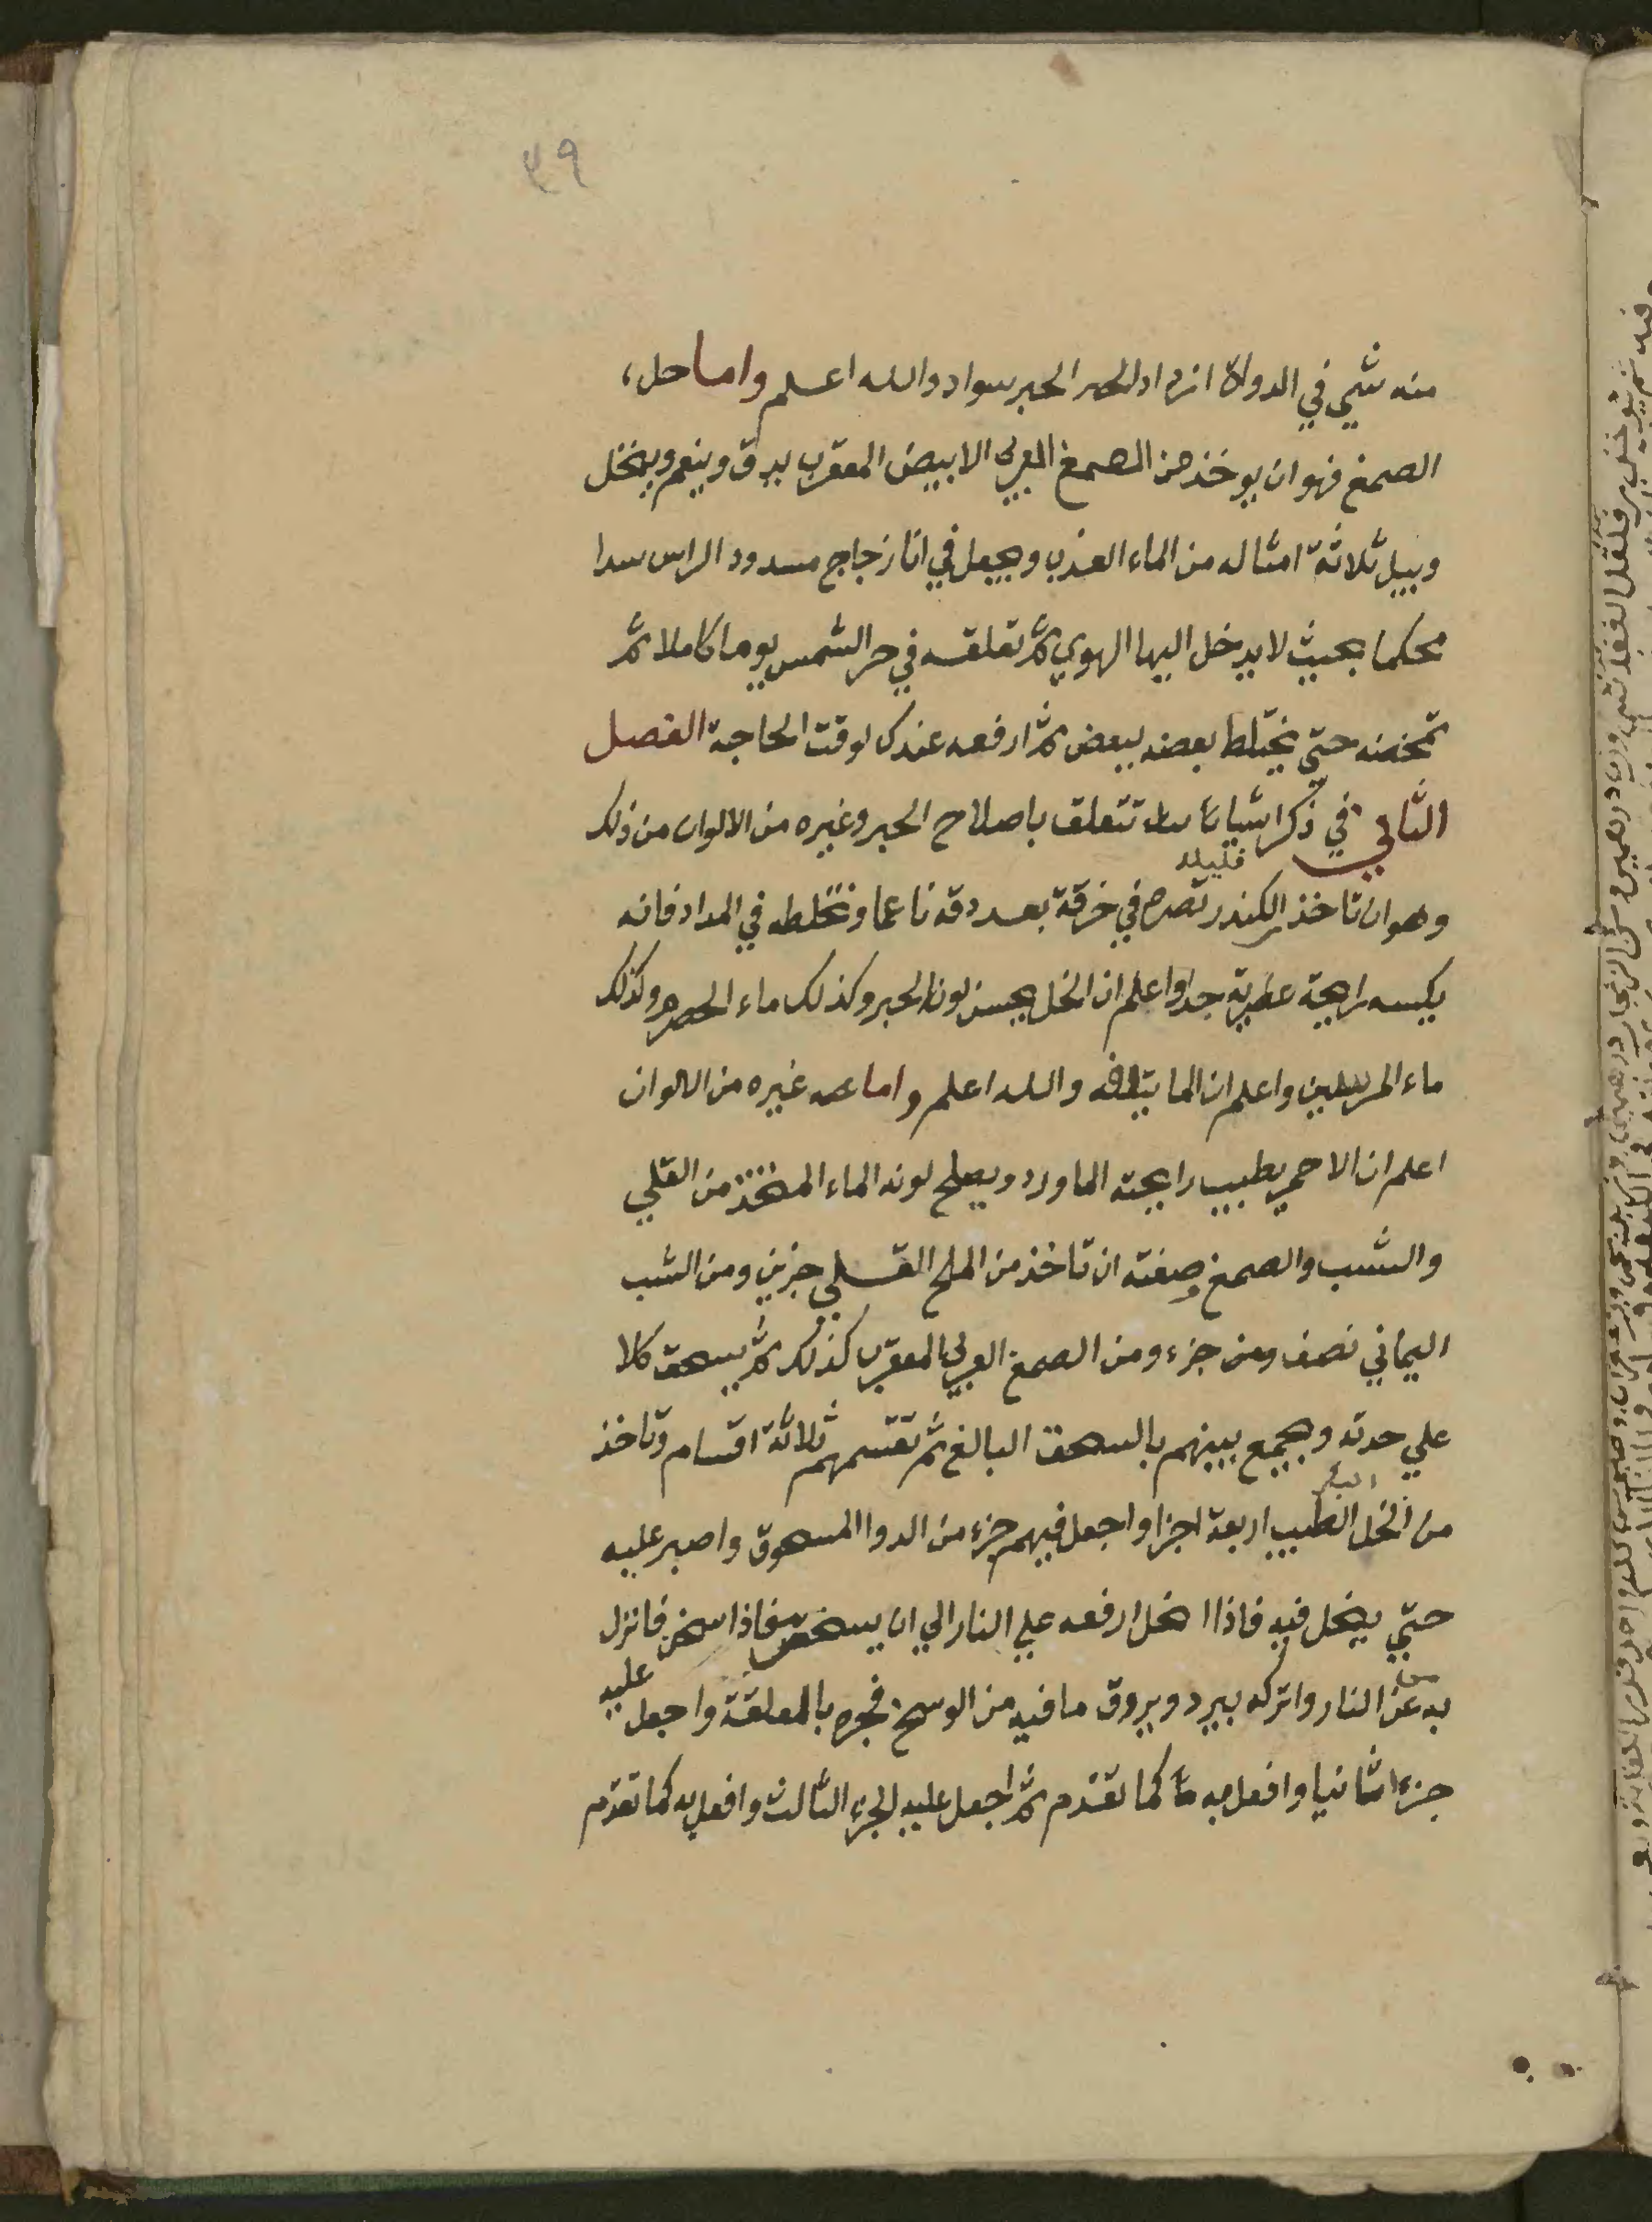 ٣٩
منه شي في الدواة ازداد الحبر سواد والله اعلم واما حل
الصمغ فهو ان يوخذ من الصمغ العربي الابيض المعقرب يدق وينعم وينخل
ويبل ثلاثة امثاله من الماء العذب ويجعل في انا زجاج مسدود الراس سدا
محكما بحيث لا يدخل اليها الهوي ثم تعلقه في حر الشمس يوما كاملا ثم
تمخضه حتي يختلط بعضه ببعض ثم ارفعه عندك لوقت الحاجة الفصل
الثاني في ذكر اشيا تتعلق باصلاح الحبر وغيره من الالوان من ذلك
وهو ان تاخذ الكندر قليلا تصره في خرقة بعد دقه ناعما وتخلطه في المداد فانه
يكسبه رايحة عطرية جدا واعلم ان الخل يحسن لون الحبر وكذلك ماء الحصرم وكذلك
ماء المرسين واعلم ان الما يتلفه والله اعلم واما غيره من الالوان
اعلم ان الاحمر يطيب رايحته الماورد ويصلح لونه الماء المتخذ من القلي
والشب والصمغ وصفته ان تاخذ من الملح القلي جزين ومن الشب
اليماني نصف جزء ومن الصمغ العربي المعقرب كذلك ثم يسحق كلا
علي حدته ويجمع بينهم بالسحق البالغ ثم تقسمهم ثلاثة اقسام وتاخذ
من الخل الطيب اربعة اجزا واجعل فيهم جزء من الدوا المسحوق واصبر عليه
حتي ينحل فيه فاذا انحل ارفعه علي النار الي ان يسخن فاذا سخن فانزل
به عن النار واتركه يبرد ويروق ما فيه من الوسخ فجره بالمعلقة واجعل عليه
جزءا ثانيا وافعل به كما تقدم ثم اجعل عليه الجزء الثالث وافعل به كما تقدم